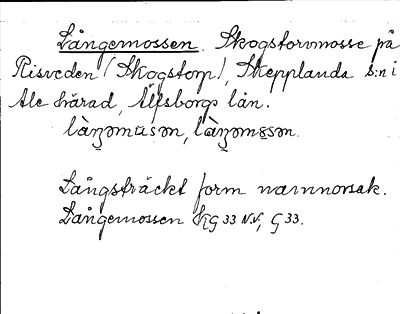 Långemossen. Skogstorvmosse på
Risveden (Skogstorp), Skepplanda s:n i
Ale härad, Älfsborgs län.
Långsträckt form namnorsak.
Långemossen KG 33 N.V., G 33.